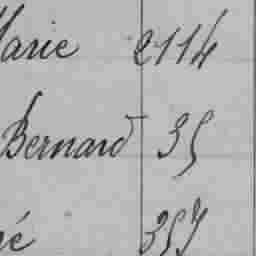 Marie 2114
Bernard 35
né 357